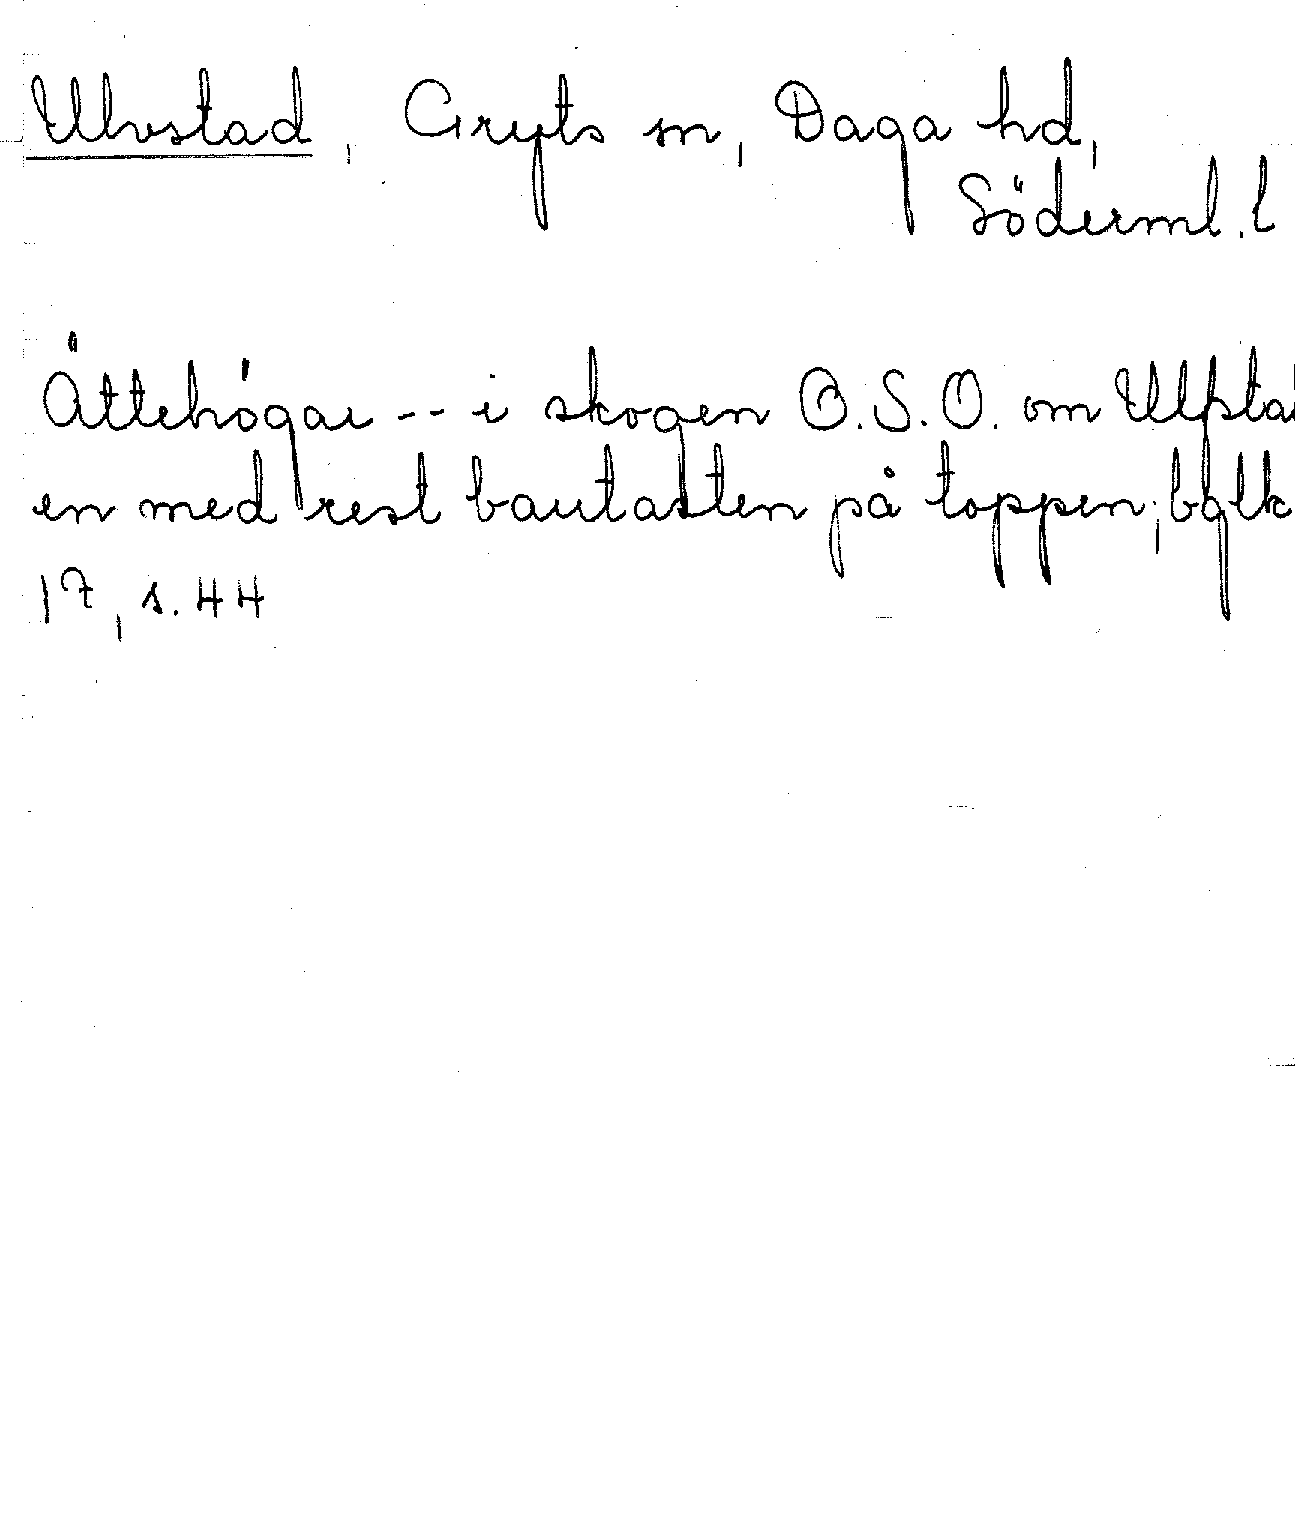 Ulvstad, Gryts sn, Daga hd,
Söderml. l
Ättehögar -- i skogen O.S.O. om Ulfsta
en med rest bautasten på toppen; bglk
17, s. 44